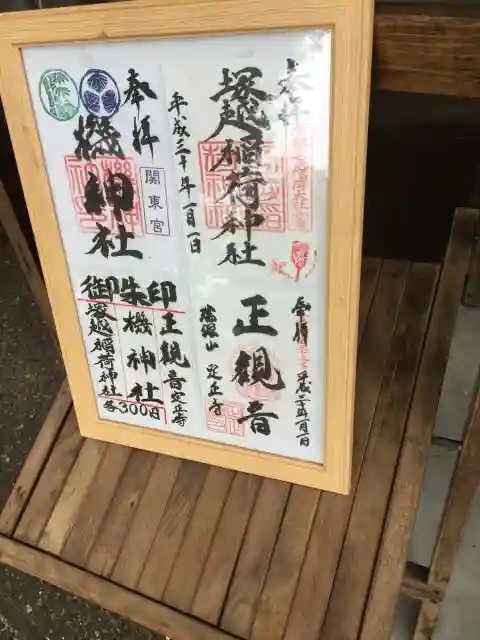 奉拝
塚越稲荷神社
平成三十年一月一日
奉拝
機神社
関東宮
奉拝
平成三十年一月一日
正観音
定正寺
御朱印
正観音 定正寺
機神社
塚越稲荷神社
各300円